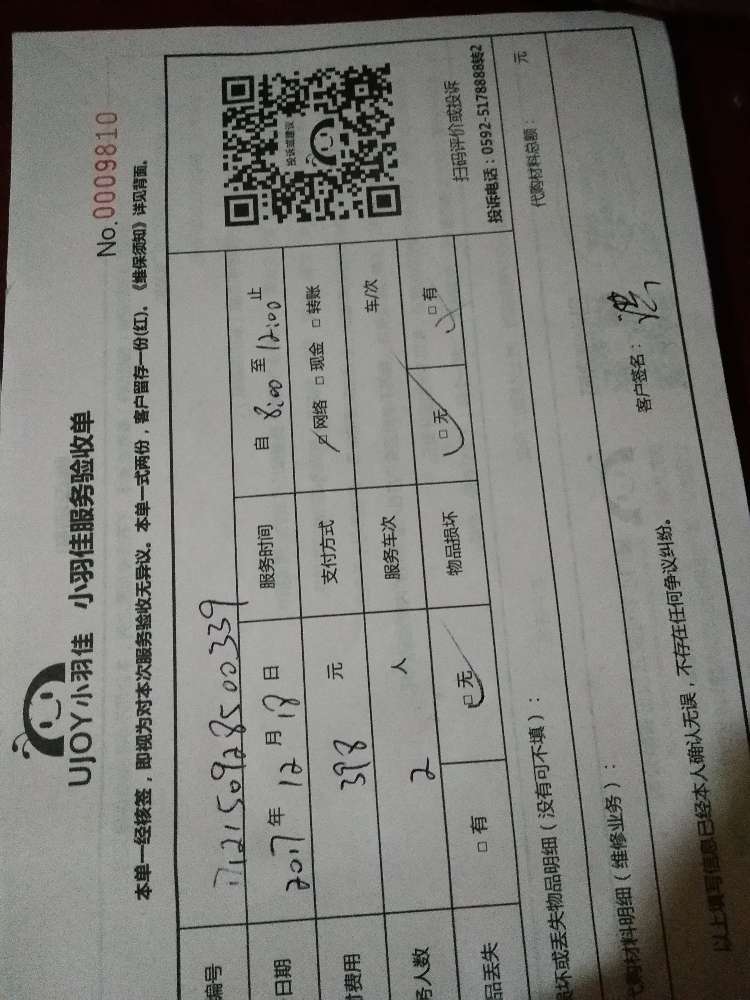 UJOY小羽佳 小羽佳服务验收单
No.0009810
本单一经核签，即视为对本次服务验收无异议。本单一式两份，客户留存一份(红)。《维保须知》详见背面。
编号 17121509285 00339
日期 2017年 12月 18日 服务时间 自 8:00 至 12:00 止
付费用 398 元 支付方式 □网络 □现金 □转账
务人数 2 人 服务车次 车/次
品丢失 □有 □无 物品损坏 □无 □有
投诉或建议
扫码评价或投诉
投诉电话：0592-5178888转2
坏或丢失物品明细（没有可不填）：
代购材料明细（维修业务）：
代购材料总额： 元
以上填写信息已经本人确认无误，不存在任何争议纠纷。
客户签名：